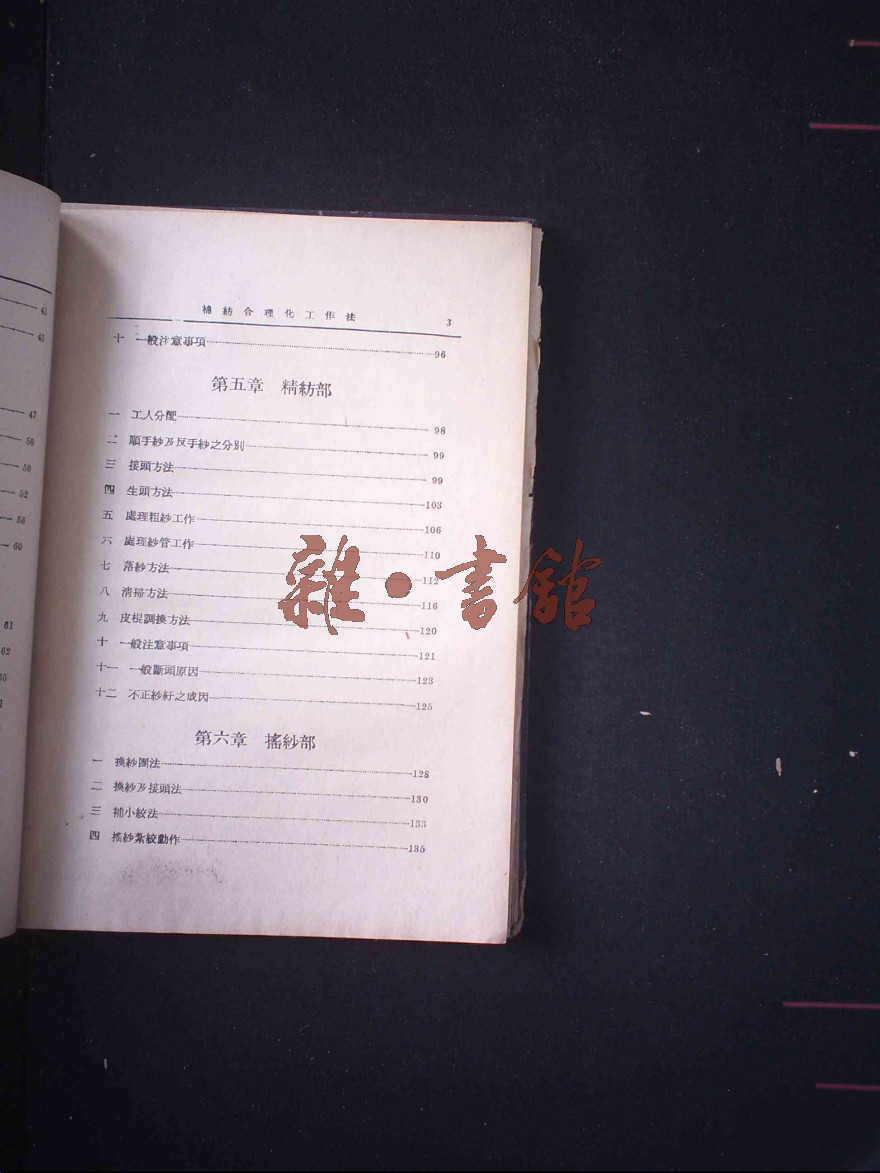 41
41
47
50
50
52
56
60
61
62
棉紡合理化工作法 3
十 一般注意事項 96
第五章 精紡部
一 工人分配 98
二 順手紗及反手紗之分別 99
三 接頭方法 99
四 生頭方法 103
五 處理粗紗工作 106
六 處理紗管工作 110
七 落紗方法 112
八 清掃方法 116
九 皮棍調換方法 120
十 一般注意事項 121
十一 一般斷頭原因 123
十二 不正紗紆之成因 125
第六章 搖紗部
一 換紗團法 128
二 換紗及接頭法 130
三 補小絞法 133
四 搖紗紮絞動作 135
雜·書館